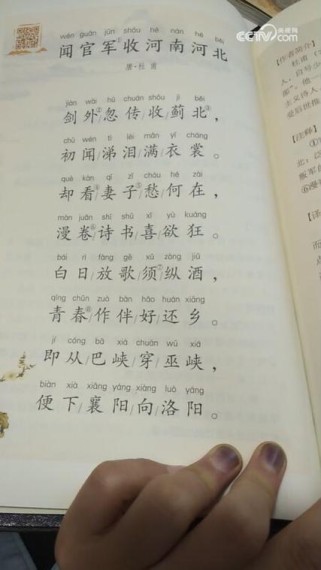 CCTV.com 央视网
wén guān jūn shōu hé nán hé běi
闻官军①收河南河北
唐·杜甫
jiàn wài hū chuán shōu jì běi
剑外②/忽传/收/蓟北③，
chū wén tì lèi mǎn yī cháng
初闻/涕泪/满/衣裳。
què kàn qī zǐ chóu hé zài
却看④/妻子/愁/何在，
màn juǎn shī shū xǐ yù kuáng
漫卷⑤/诗书/喜/欲狂。
bái rì fàng gē xū zòng jiǔ
白日/放歌/须⑥/纵酒，
qīng chūn zuò bàn hǎo huán xiāng
青春⑦/作伴/好/还乡。
jí cóng bā xiá chuān wū xiá
即从/巴峡/穿/巫峡，
biàn xià xiāng yáng xiàng luò yáng
便下/襄阳/向/洛阳。